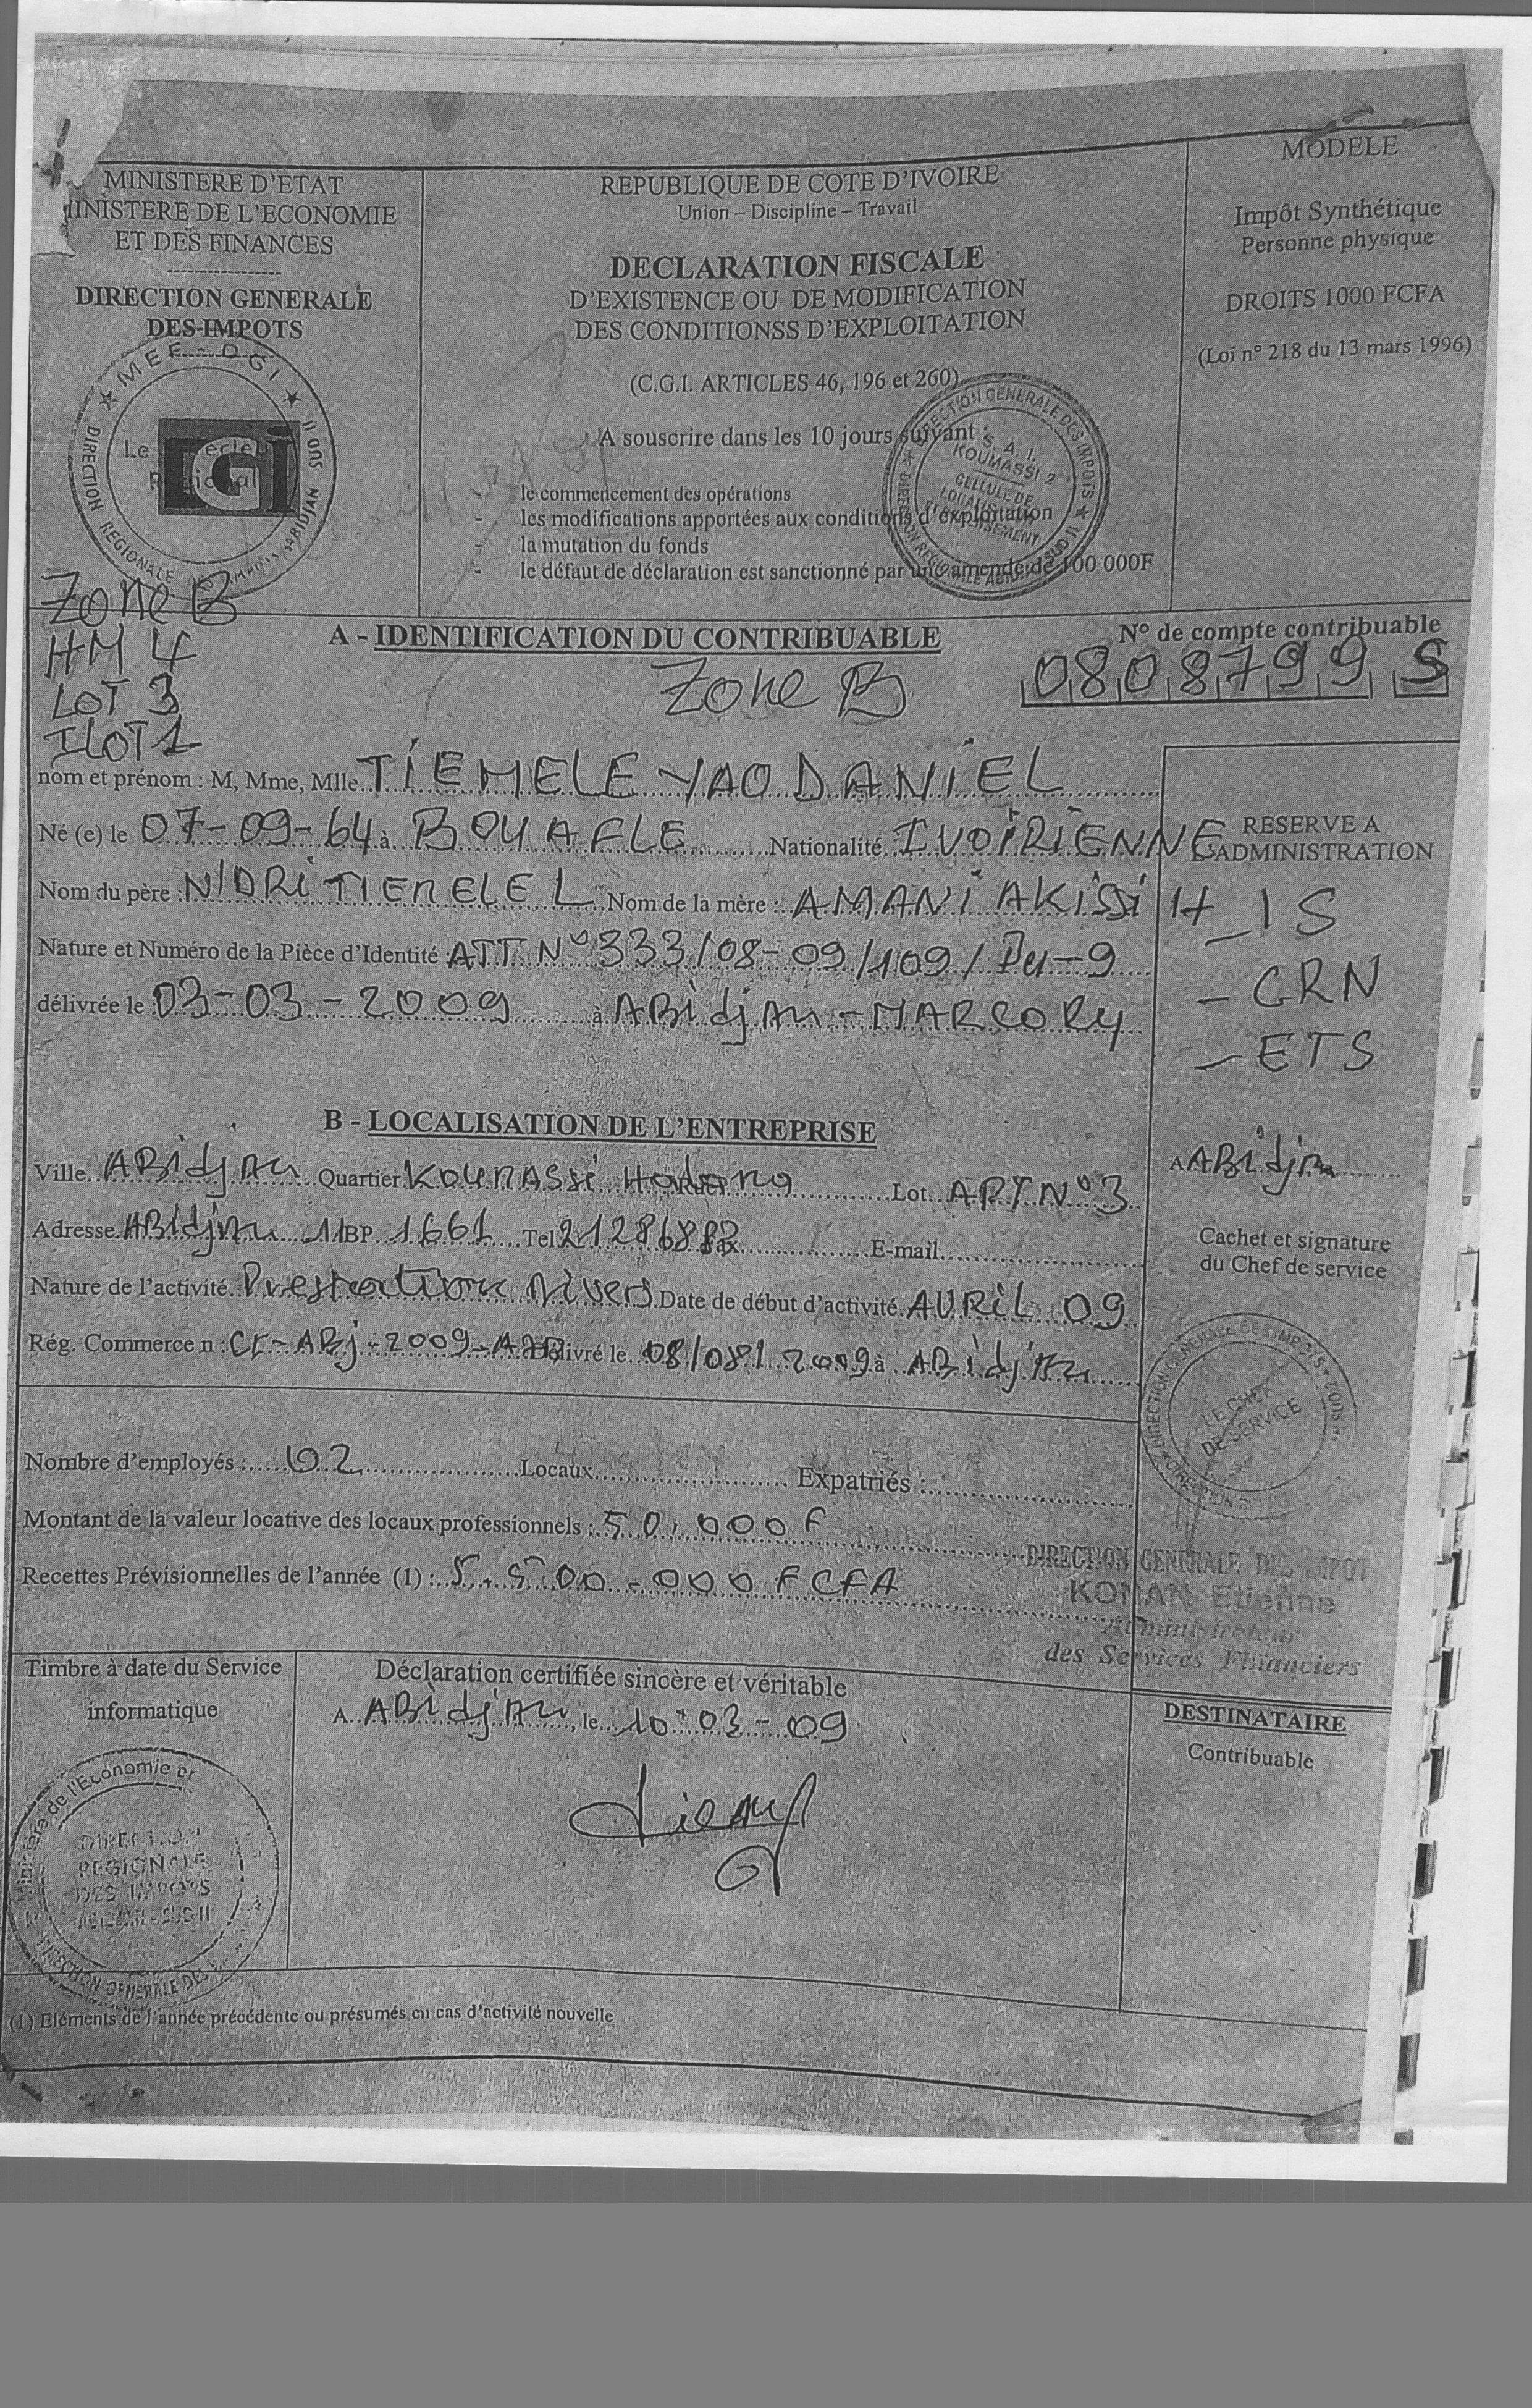 MODELE
MINISTERE D'ETAT
MINISTERE DE L'ECONOMIE
ET DES FINANCES
----------------
DIRECTION GENERALE
DES IMPOTS
REPUBLIQUE DE COTE D'IVOIRE
Union – Discipline – Travail
DECLARATION FISCALE
D'EXISTENCE OU DE MODIFICATION
DES CONDITIONSS D'EXPLOITATION
(C.G.I. ARTICLES 46, 196 et 260)
A souscrire dans les 10 jours suivant :
le commencement des opérations
- les modifications apportées aux conditions d'exploitation
- la mutation du fonds
- le défaut de déclaration est sanctionné par une amende de 100 000F
Impôt Synthétique
Personne physique
DROITS 1000 FCFA
(Loi n° 218 du 13 mars 1996)
MEF - DGI
DIRECTION REGIONALE DES IMPOTS ABIDJAN SUD II
Le Directeur
Régional
DGI
DIRECTION GENERALE DES IMPOTS
S. A. I.
KOUMASSI 2
CELLULE DE
Zone B
HM 4
LOT 3
ILOT 1
A - IDENTIFICATION DU CONTRIBUABLE
Zone B
N° de compte contribuable
0808799 S
nom et prénom : M, Mme, Mlle TIEMELE YAO DANIEL
Né (e) le 07-09-64 à BOUAFLE Nationalité IVOIRIENNE
Nom du père : N'DRI TIEMELE L Nom de la mère : AMANI AKISSI H
Nature et Numéro de la Pièce d'Identité : ATT N° 333/08-09/109/PU-9
délivrée le : 03-03-2009 à ABidjan - MARCORY
RESERVE A
L'ADMINISTRATION
- IS
- CRN
- ETS
B - LOCALISATION DE L'ENTREPRISE
Ville ABidjan Quartier KOUMASSI Hodong Rue Lot APT N°3
Adresse ABidjan 11 BP 1661 Tel 21286882 Fax E-mail
Nature de l'activité Prestation Divers Date de début d'activité AVRIL 09
Rég. Commerce n : CI-ABj-2009-A Délivré le 08/08/2009 à ABidjan
A ABidjan
Cachet et signature
du Chef de service
DIRECTION GENERALE DES IMPOTS
LE CHEF
DE SERVICE
Nombre d'employés : 02 Locaux Expatriés :
Montant de la valeur locative des locaux professionnels : 50.000 F
Recettes Prévisionnelles de l'année (1) : 5.500.000 FCFA
DIRECTION GENERALE DES IMPOT
KONAN Etienne
Administrateur
des Services Financiers
Timbre à date du Service
informatique
Déclaration certifiée sincère et véritable
A ABidjan, le 10-03-09
DESTINATAIRE
Contribuable
Ministère de l'Economie et
DIRECTION
REGIONALE
DES IMPOTS
ABIDJAN - SUD II
DIRECTION GENERALE DES
(1) Eléments de l'année précédente ou présumés en cas d'activité nouvelle